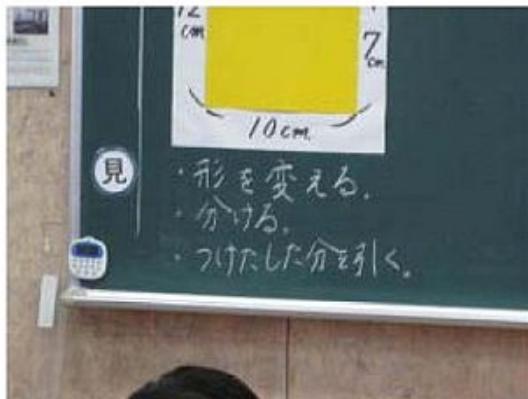 12
cm
7
cm
10cm
見
・形を変える。
・分ける。
・つけたした分を引く。